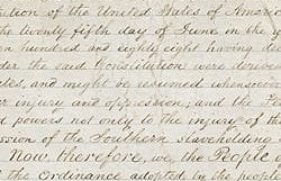 tution of the United States of Americ
the twenty fifth day of June in the y
en hundred and eighty eight having dec
der the said Constitution were derive
ates, and might be resumed whensoever
r injury and oppression; and the Fe
d powers not only to the injury of th
ssion of the Southern slaveholding
Now, therefore, we, the People o
t the Ordinance adopted in the people